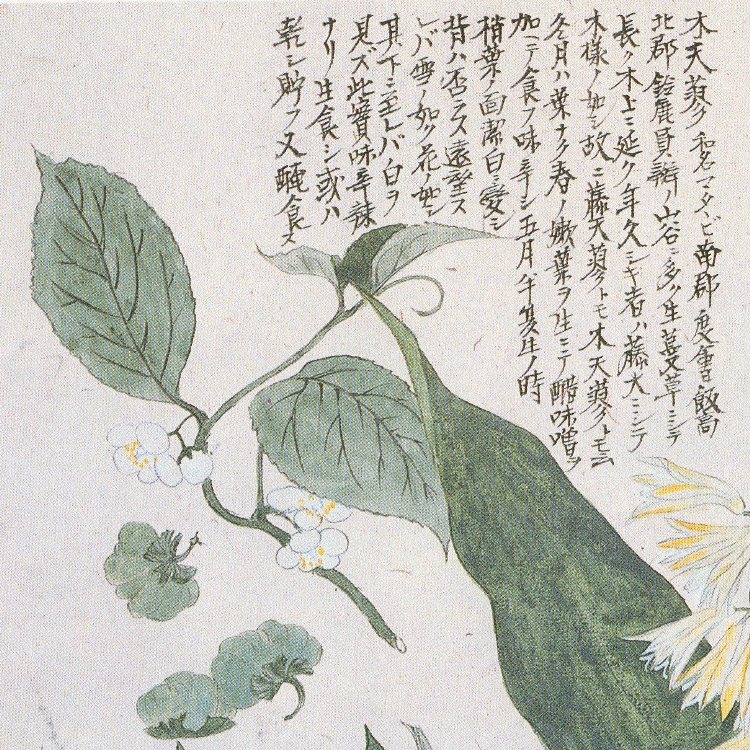 木天蓼 和名マタヽビ 南郡 度會 飯高
北郡 鈴鹿 員辨ノ山谷ニ多ク生 蔓草ニシテ
長ク木上ニ延ク年久シキ者ハ藤大ニシテ
木様ノ如シ故ニ藤天蓼トモ木天蓼トモ云
冬月ハ葉ナク春ノ嫩葉ヲ生ニテ酷味噌ヲ
加ニテ食フ味辛シ五月半夏生ノ時
梢葉ノ面潔白ニ變シ
背ハ否ラス遠望ス
レバ雪ノ如ク花ノ如シ
其下ニ至レバ白ヲ
見ズ此實味辛辣
ナリ生食シ或ハ
乾シ貯フ又醃食ス